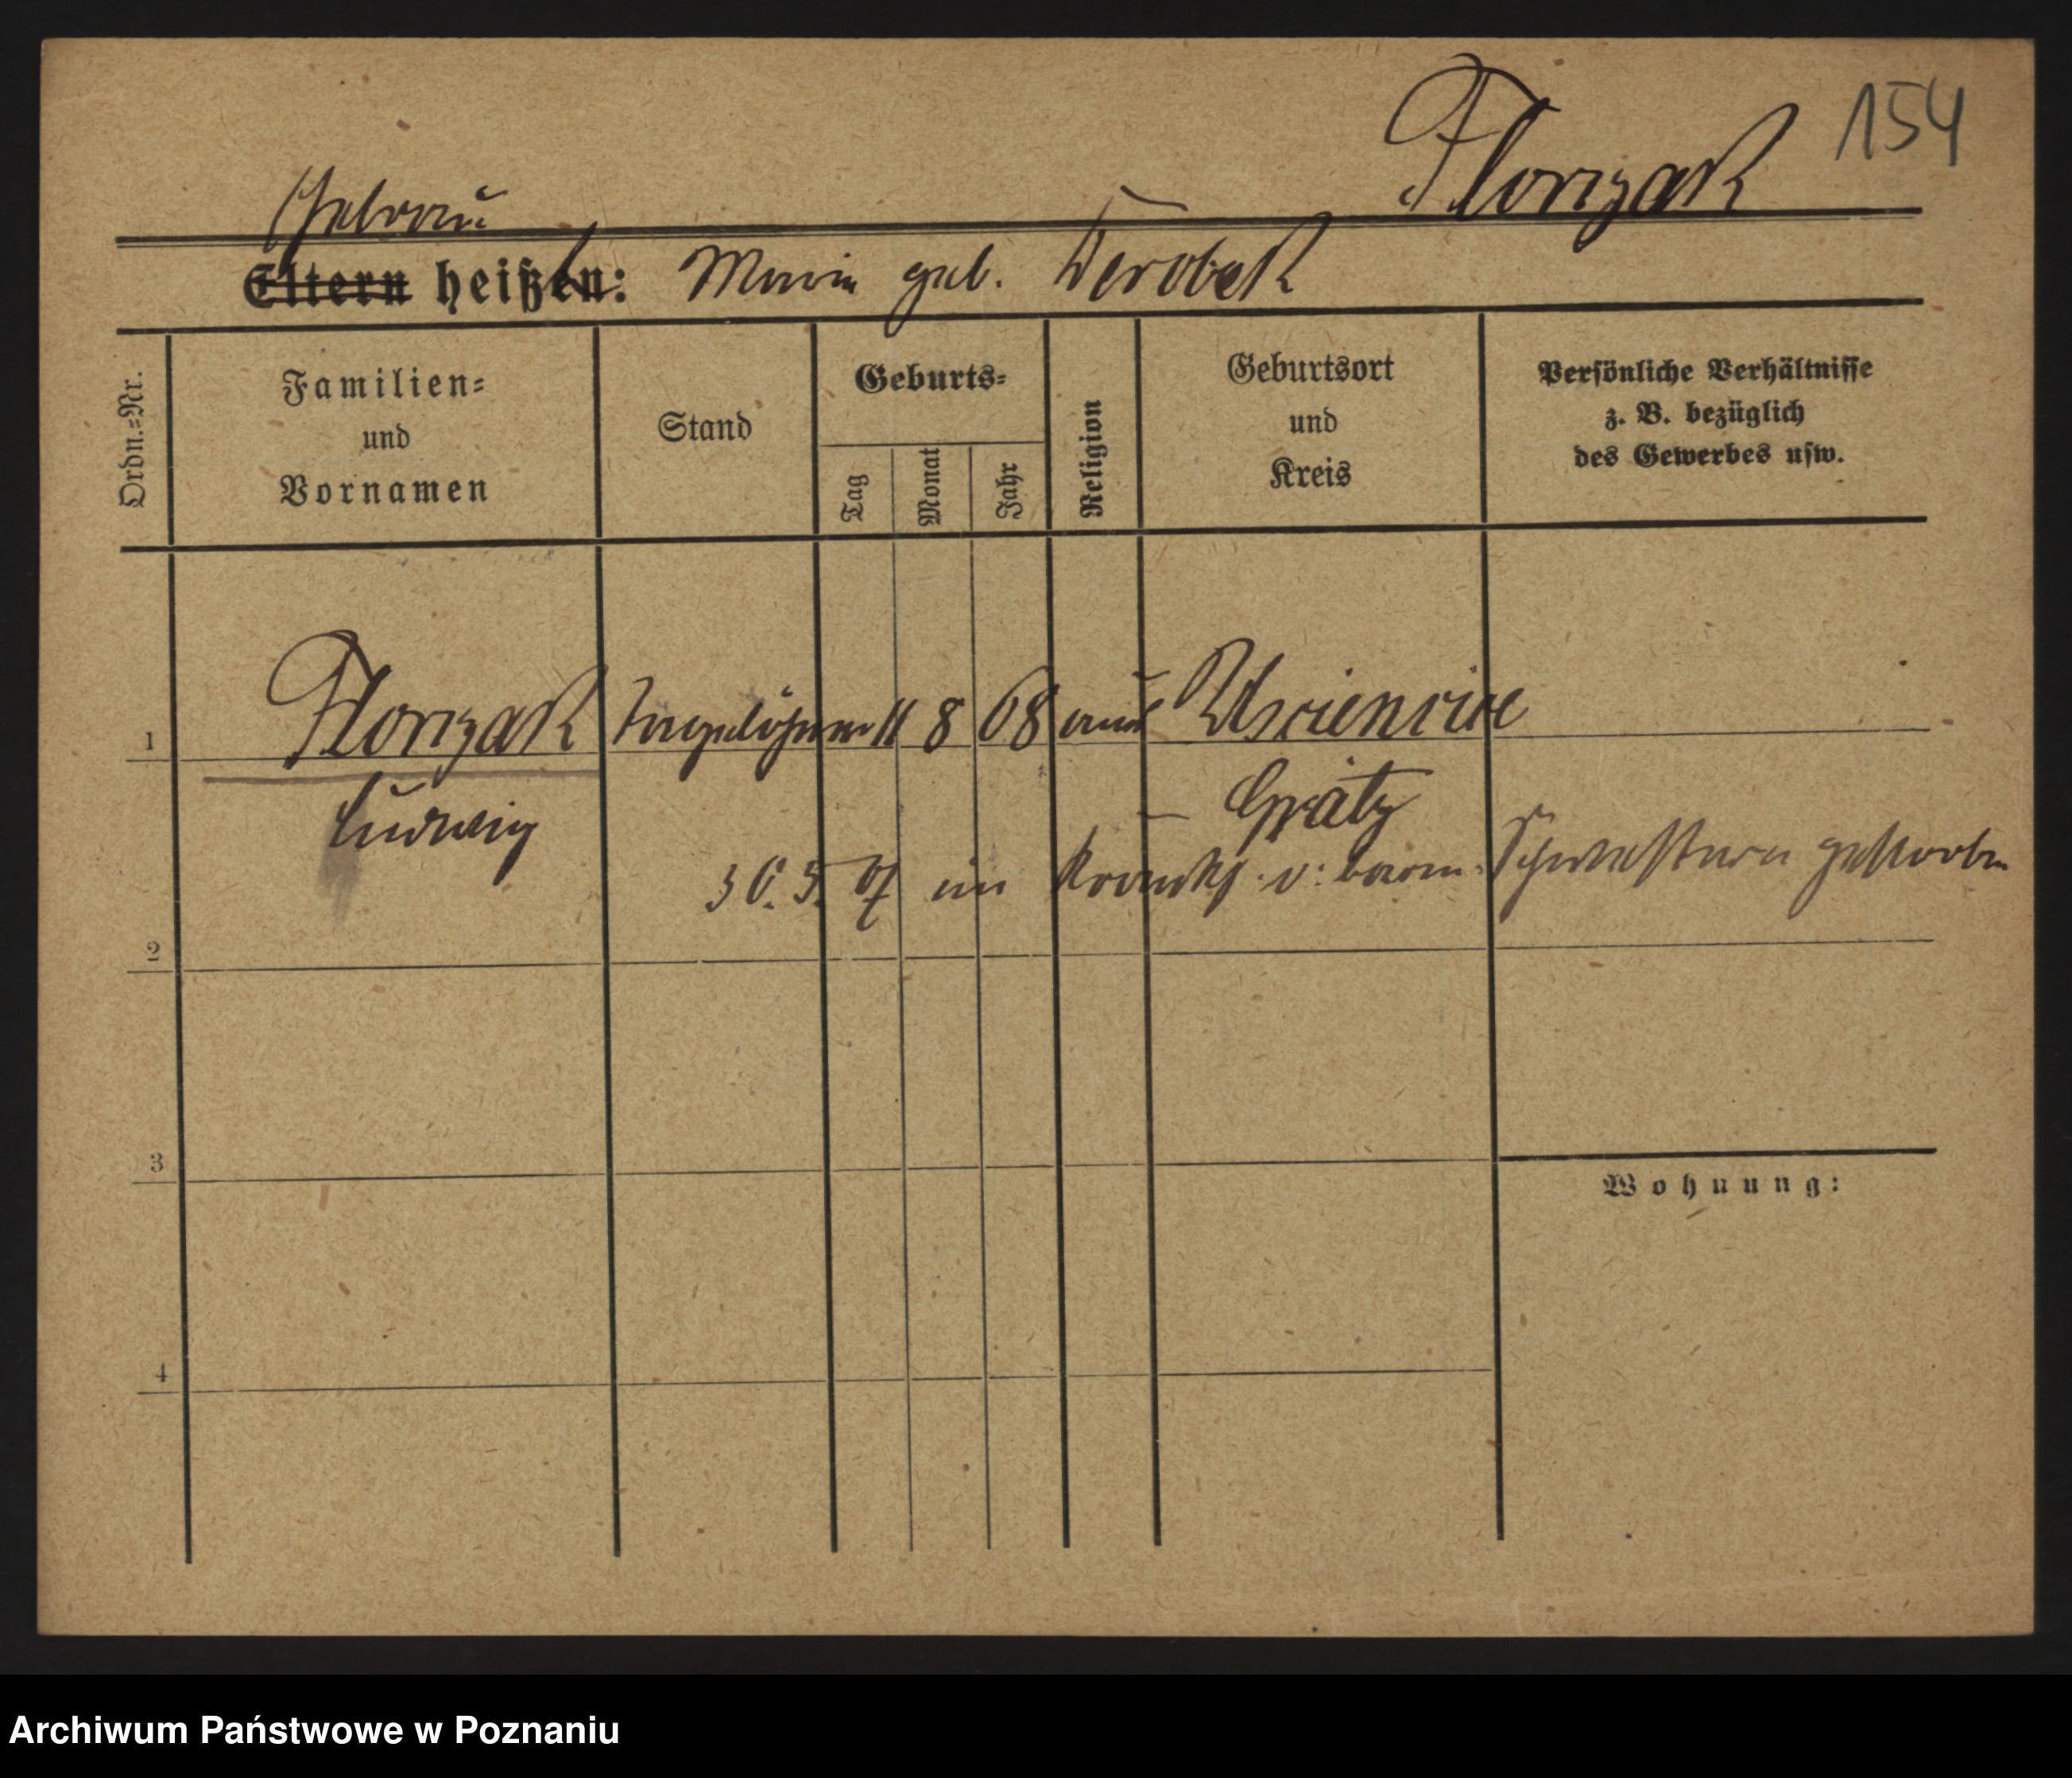 154
Florczak
Ehefrau
Eltern heißen: Marie geb. Skrobak
Ordn.=Nr.
Familien=
und
Vornamen
Stand
Geburts=
Tag
Monat
Jahr
Religion
Geburtsort
und
Kreis
Persönliche Verhältnisse
z. B. bezüglich
des Gewerbes usw.
1 Florczak 11 8 68 Usciencice
Ludwig Grätz
30. 5. 07 im Krankh. v. barm. Schwestern gestorben
2
3
Wohnung:
4
Archiwum Państwowe w Poznaniu